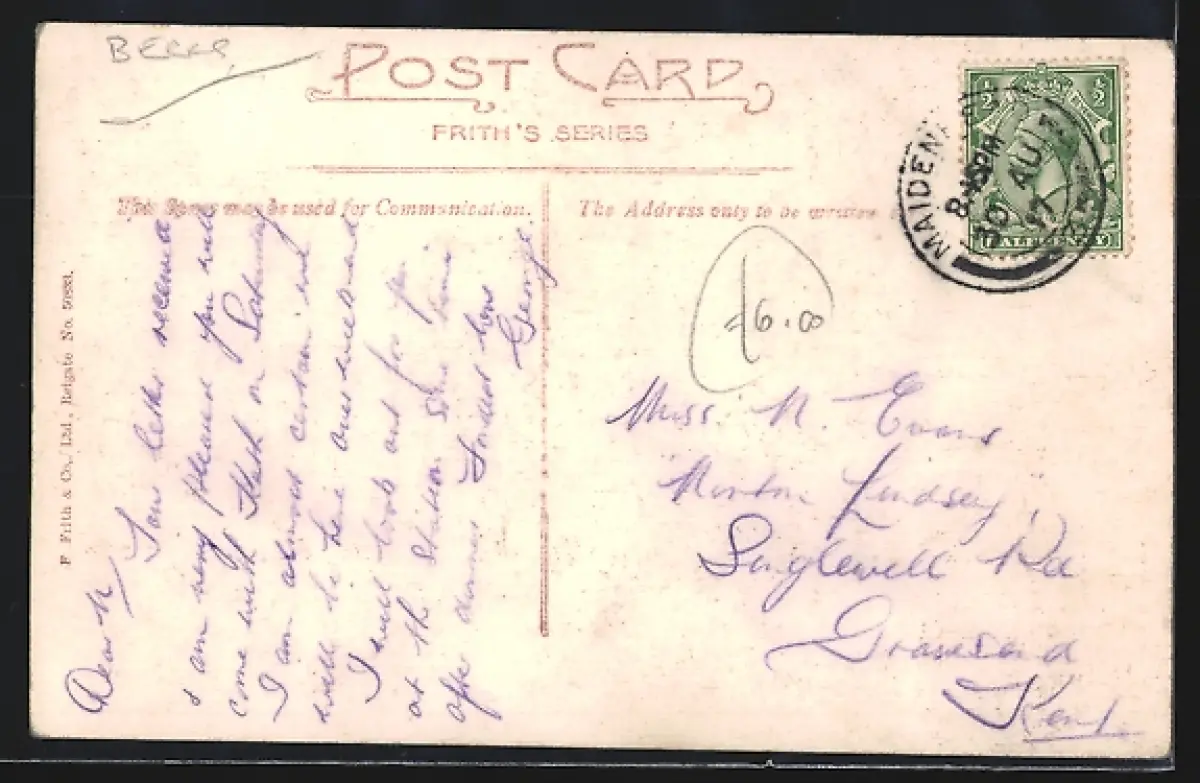 POST CARD
FRITH'S SERIES
This Space may be used for Communication.
The Address only to be written
MAIDENHEAD
8.45PM
30 AU
17
½ ½
HALFPENNY
£6.00
F Frith & Co., Ltd., Reigate No.
Dear N
Your letter received
I am very pleased you will
come with on Saturday
I am almost certain
will be here
I will look out for you
at the Station some time
after dinner
George
Miss. N. Evans
Morton Lindsey,
Singlewell Rd
Gravesend
Kent